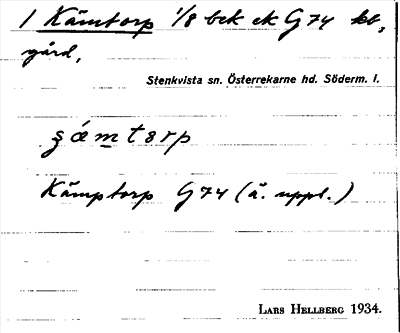 1 Kämtorp 1/8 bek ek G 74 kb,
gård,
Stenkvista sn. Österrekarne hd. Söderm. l.
ʒǽmtɔrp
Kämptorp G 74 (ä. uppl.)
LARS HELLBERG 1934.